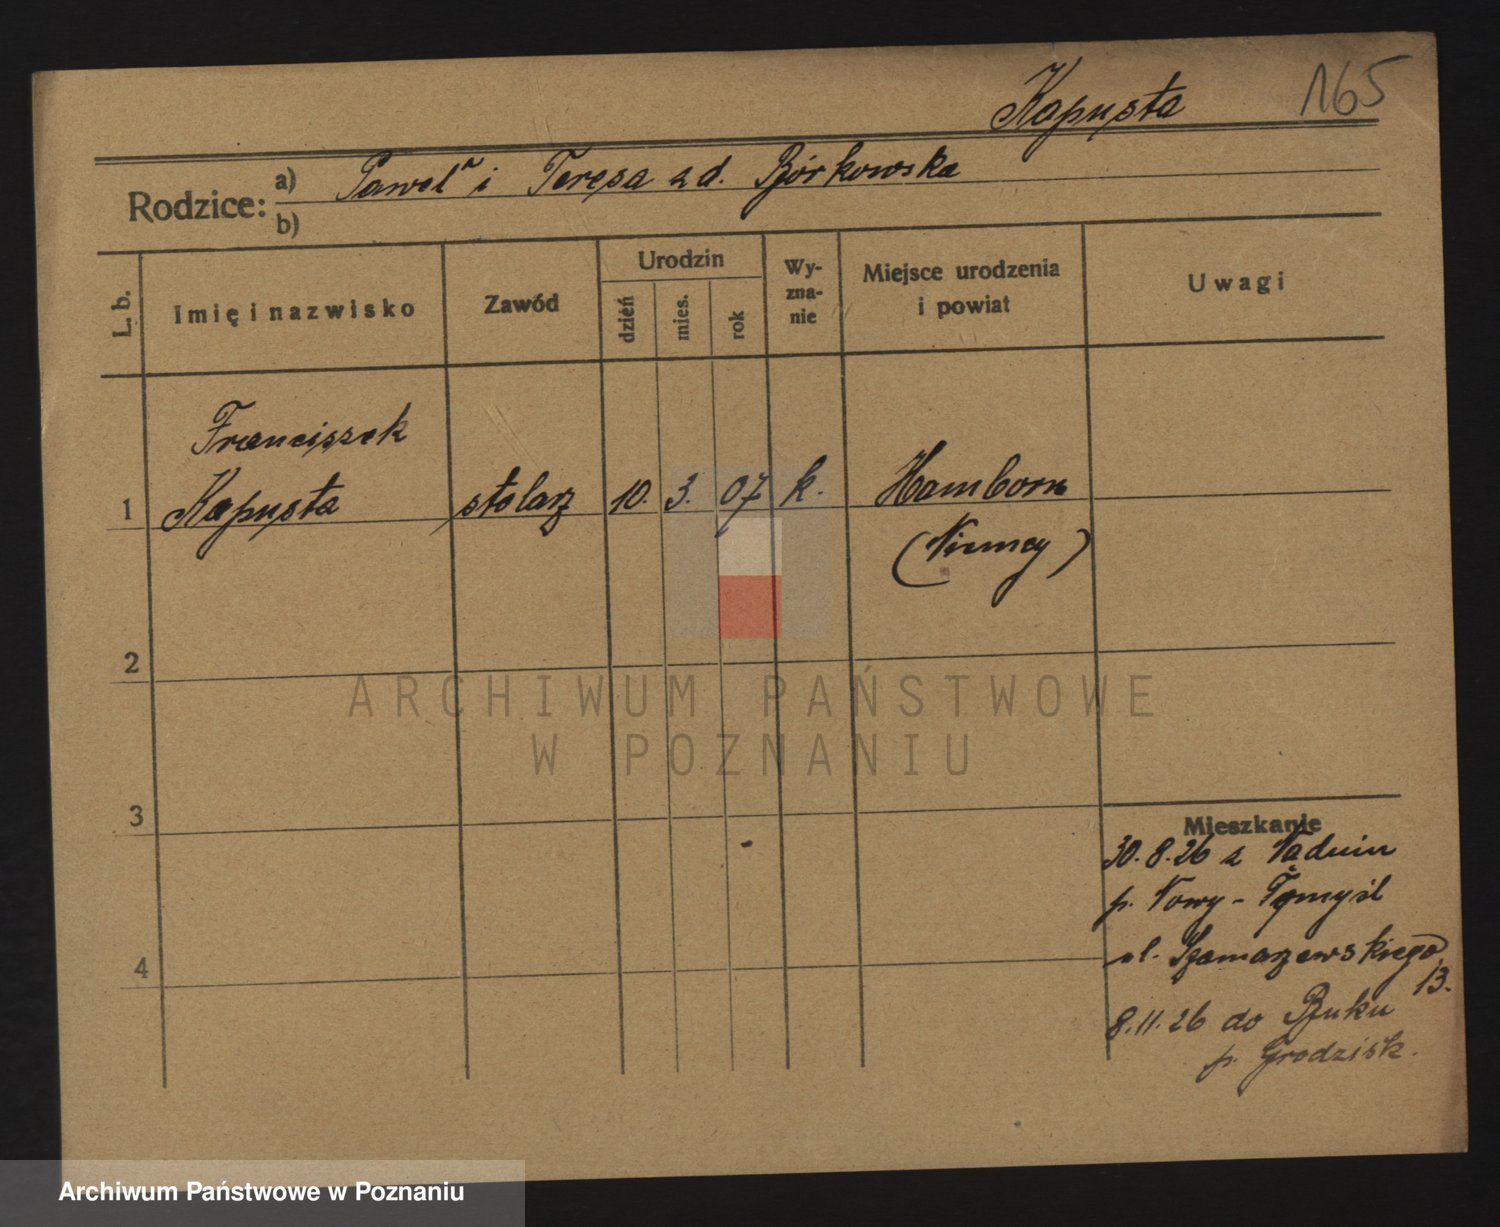 Kapusta
165
Rodzice:
a) Paweł i Teresa z d. Bórkowska
b)
L. b.
Imię i nazwisko
Zawód
Urodzin
dzień
mies.
rok
Wy-
zna-
nie
Miejsce urodzenia
i powiat
Uwagi
Franciszek
1 Kapusta stolarz 10. 3. 07 k. Hamborn
(Niemcy)
2
ARCHIWUM PAŃSTWOWE
W POZNANIU
3
Mieszkanie
30.8.26 z
p. Nowy-Tomyśl
4
ul. Szamarzewskiego
13.
8.11.26 do Buku
p. Grodzisk.
Archiwum Państwowe w Poznaniu